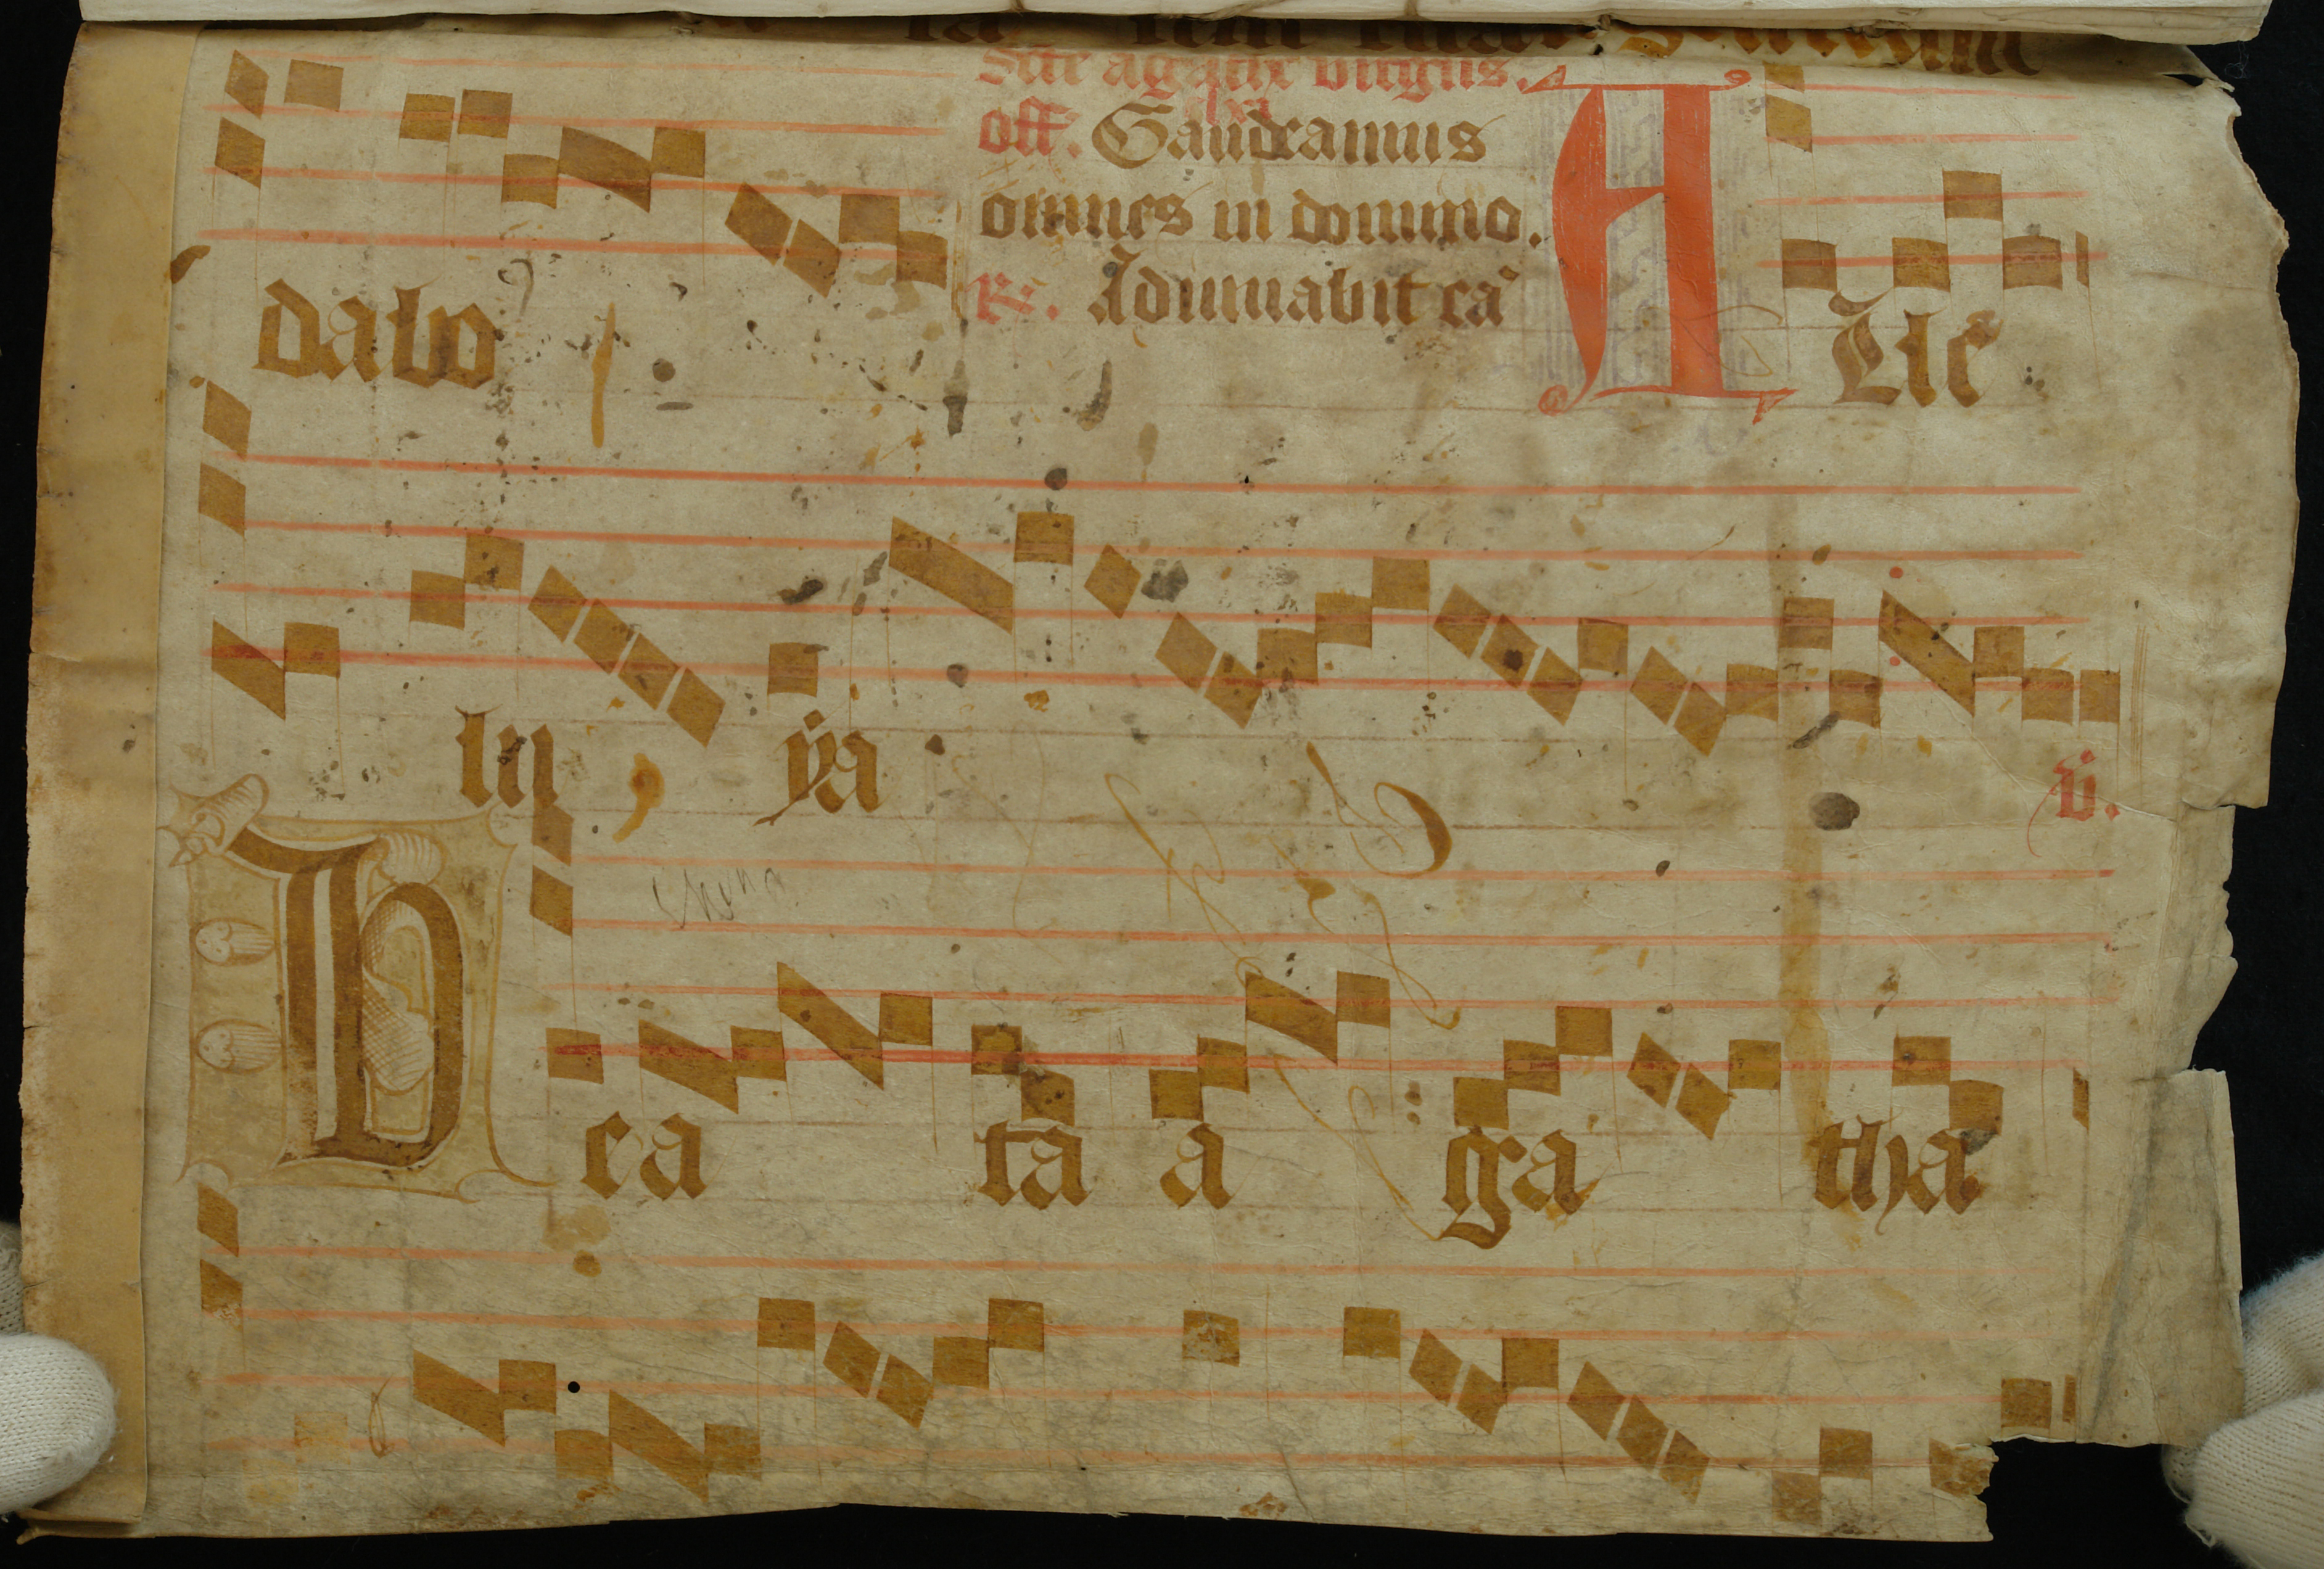 Scte agathe virginis.
off. Gaudeamus
omnes in domino.
R. Adiuuabit eā
dabo
A Lle
lu ya
v.
B ea ta a ga tha